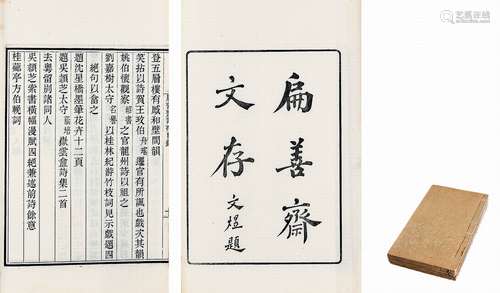 扁善齋
文存
文煜題
登五層樓有感和壁間韻
笑拈以詩賀王玫伯遷官有所諷也戲次其韻
姚伯懷觀察之官龍州詩以組之
劉嘉樹太守名譽以桂林紀游竹枝詞見示戲題四
絕句以貪之
題沈星橋墨暈花卉十二頁
題吳頷芝太守嶽裳盦詩集二首
去粵留別諸同人
吳頷芝索書橫幅漫賦四絕兼述前詩餘意
桂薌亭方伯輓詞